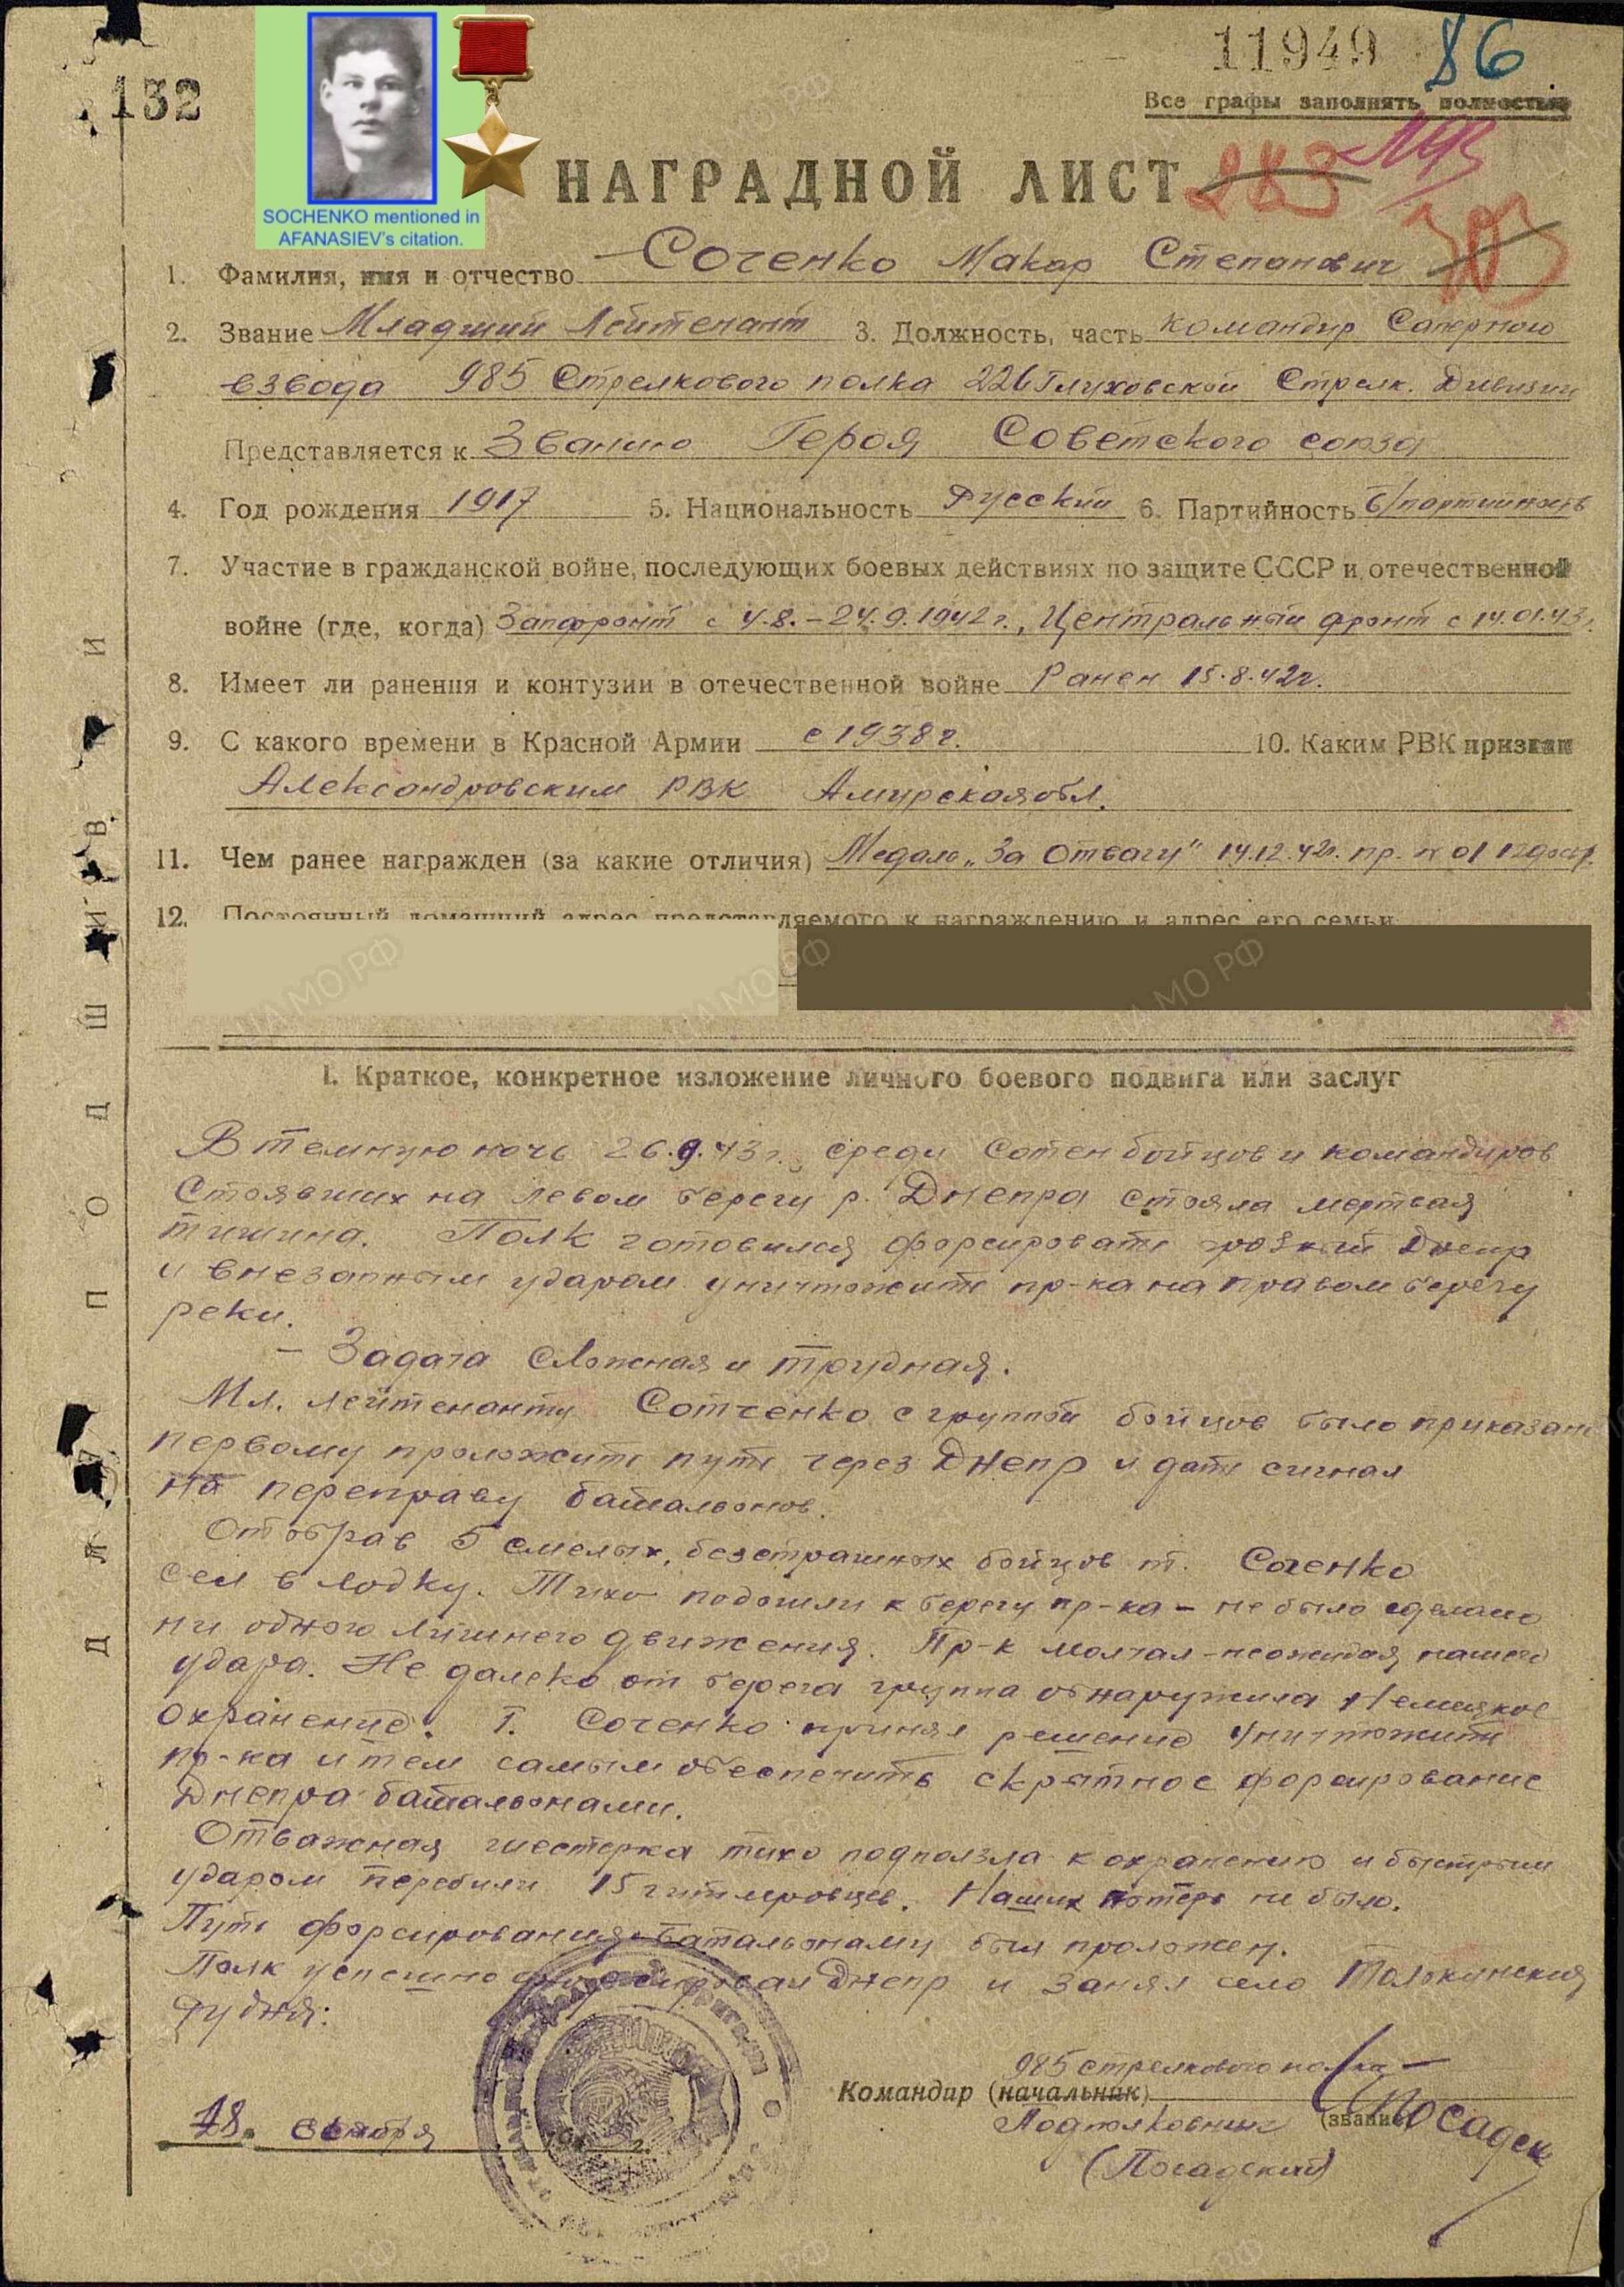 132
11949 86
Все графы заполнять полностью
SOCHENKO mentioned in
AFANASIEV's citation.
НАГРАДНОЙ ЛИСТ 283
303
1. Фамилия, имя и отчество Соченко Макар Степанович
2. Звание Младший Лейтенант 3. Должность, часть командир Саперного
взвода 985 Стрелкового полка 226 Глуховской Стрелк. Дивизии
Представляется к Званию Героя Советского союза
4. Год рождения 1917 5. Национальность Русский 6. Партийность б/партийность
7. Участие в гражданской войне, последующих боевых действиях по защите СССР и отечественной
войне (где, когда) Запфронт с 4.8.-24.9.1942г., Центральный фронт с 14.01.43г.
8. Имеет ли ранения и контузии в отечественной войне Ранен 15.8.42г.
9. С какого времени в Красной Армии с 1938г. 10. Каким РВК призван
Александровским РВК Амурская обл.
11. Чем ранее награжден (за какие отличия) Медаль „За Отвагу" 14.12.42г. пр. № 01
12. Постоянный домашний адрес представляемого к награждению и адрес его семьи
I. Краткое, конкретное изложение личного боевого подвига или заслуг
В темную ночь 26.9.43г. среди сотен бойцов и командиров
Стоявших на левом берегу р. Днепра стояла мертвая
тишина. Полк готовился форсировать грозный Днепр
и внезапным ударом уничтожить пр-ка на правом берегу
реки.
- Задача Сложная и трудная.
Мл. лейтенанту Сотченко с группой бойцов было приказано
первому проложить путь через Днепр и дать сигнал
на переправу батальонов.
Отобрав 5 смелых, безстрашных бойцов т. Соченко
сел в лодку. Тихо подошли к берегу пр-ка - не было сделано
ни одного лишнего движения. Пр-к молчал - неожидая нашего
удара. Не далеко от берега группа обнаружила Немецкое
охранение. Т. Соченко принял решение уничтожить
пр-ка и тем самым обеспечить скрытное форсирование
Днепра батальонами.
Отважная шестерка тихо подползла к охранению и быстрым
ударом перебили 15 гитлеровцев. Наших потерь не было.
Путь форсирования батальонами был проложен.
Полк успешно форсировал Днепр и занял село Толокунская
Рудня.
985 стрелкового полка
Командир (начальник)
Подполковник (звание) Посадск
(Посадский)
18. октября
ДЛЯ ПОДШИВКИ